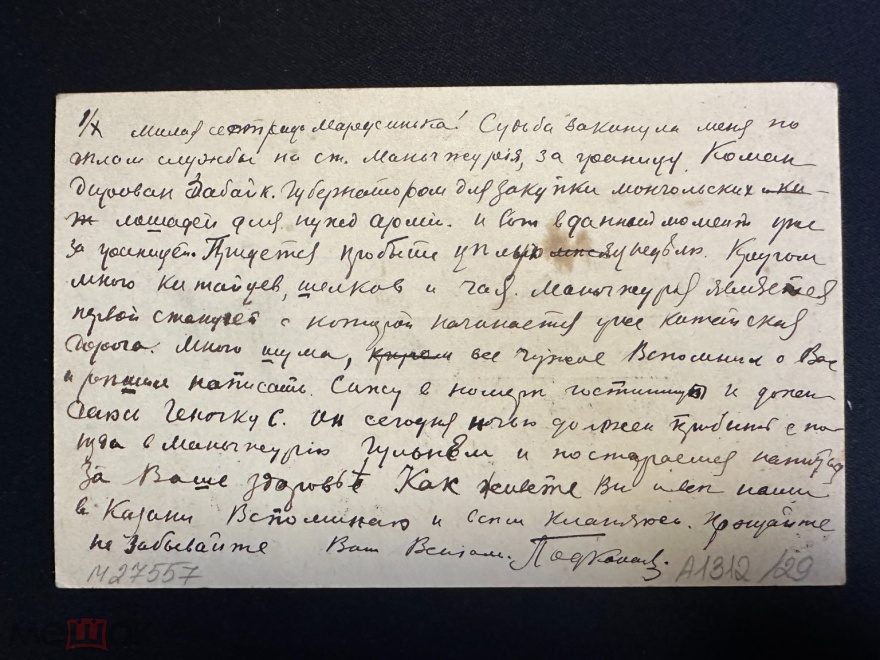 1/X Милая сестрица Марусинька! Судьба закинула меня по
делам службы на ст. Маньчжурiя, за границу. Коман
дирован Забайк. Губернатором для закупки монгольских
лошадей для нужд армiи. и вот в данный момент уже
за границей. Придется пробыть целую неделю. Кругом
много китайцев, шелков и чая. Маньчжурiя является
первой станцiей с которой начинается уже китайская
дорога. Много шума, все чужое Вспомнил о Вас
и решил написать. Сижу в номере гостиницы и
Геночку С. он сегодня ночью должен прибыть с по
езда в Маньчжурiю и постараемся
За Ваше здоровье Как живете Вы и все наши
в Казани Вспоминаю и всем кланяюсь. Прощайте
не забывайте Ваш
М27557 А1312/29
мешок